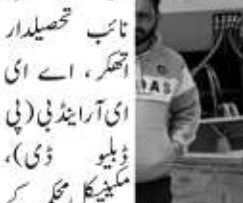 نائب تحصیلدار
اتھکر، اے ای
ای آر اینڈ بی (پی
ڈبلیو ڈی)،
مکینیکل محکمہ کے
DAS